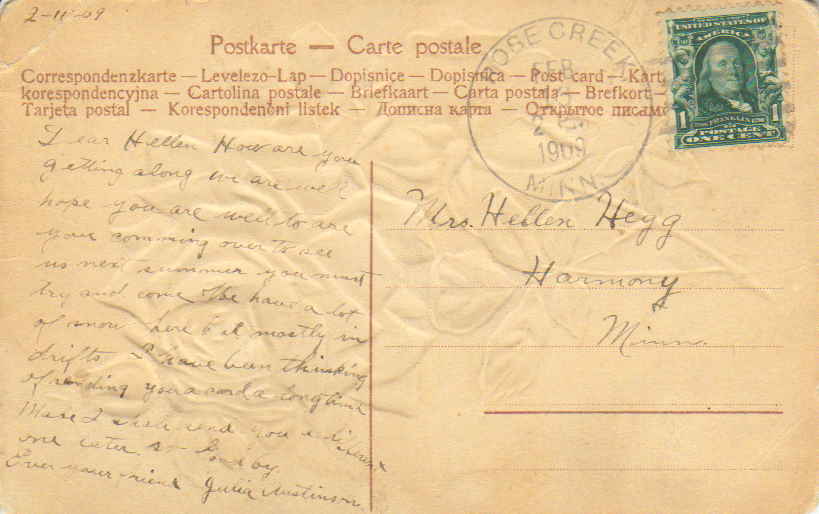 2-11-09
Postkarte — Carte postale
Correspondenzkarte — Levelezo-Lap — Dopisnice — Dopisnica — Post card — Kart
korespondencyjna — Cartolina postale — Briefkaart — Carta postala — Brefkort —
Tarjeta postal — Korespondenční listek — Дописна карта — Открытое письмо
ROSE CREEK
FEB
1909
MINN.
UNITED STATES OF
AMERICA
FRANKLIN
1 1
POSTAGE
ONE CENT
Dear Hellen How are you
getting along we are well
hope you are well to are
you comming over to see
us next summer you must
try and come We have a lot
of snow here b it mostly in
drifts. I have been thinking
of sending you a card a long time
I shall send you a different
one later. so Good by.
Ever your friend Julia Austinson.
Mrs. Hellen Hegg
Harmony
Minn.